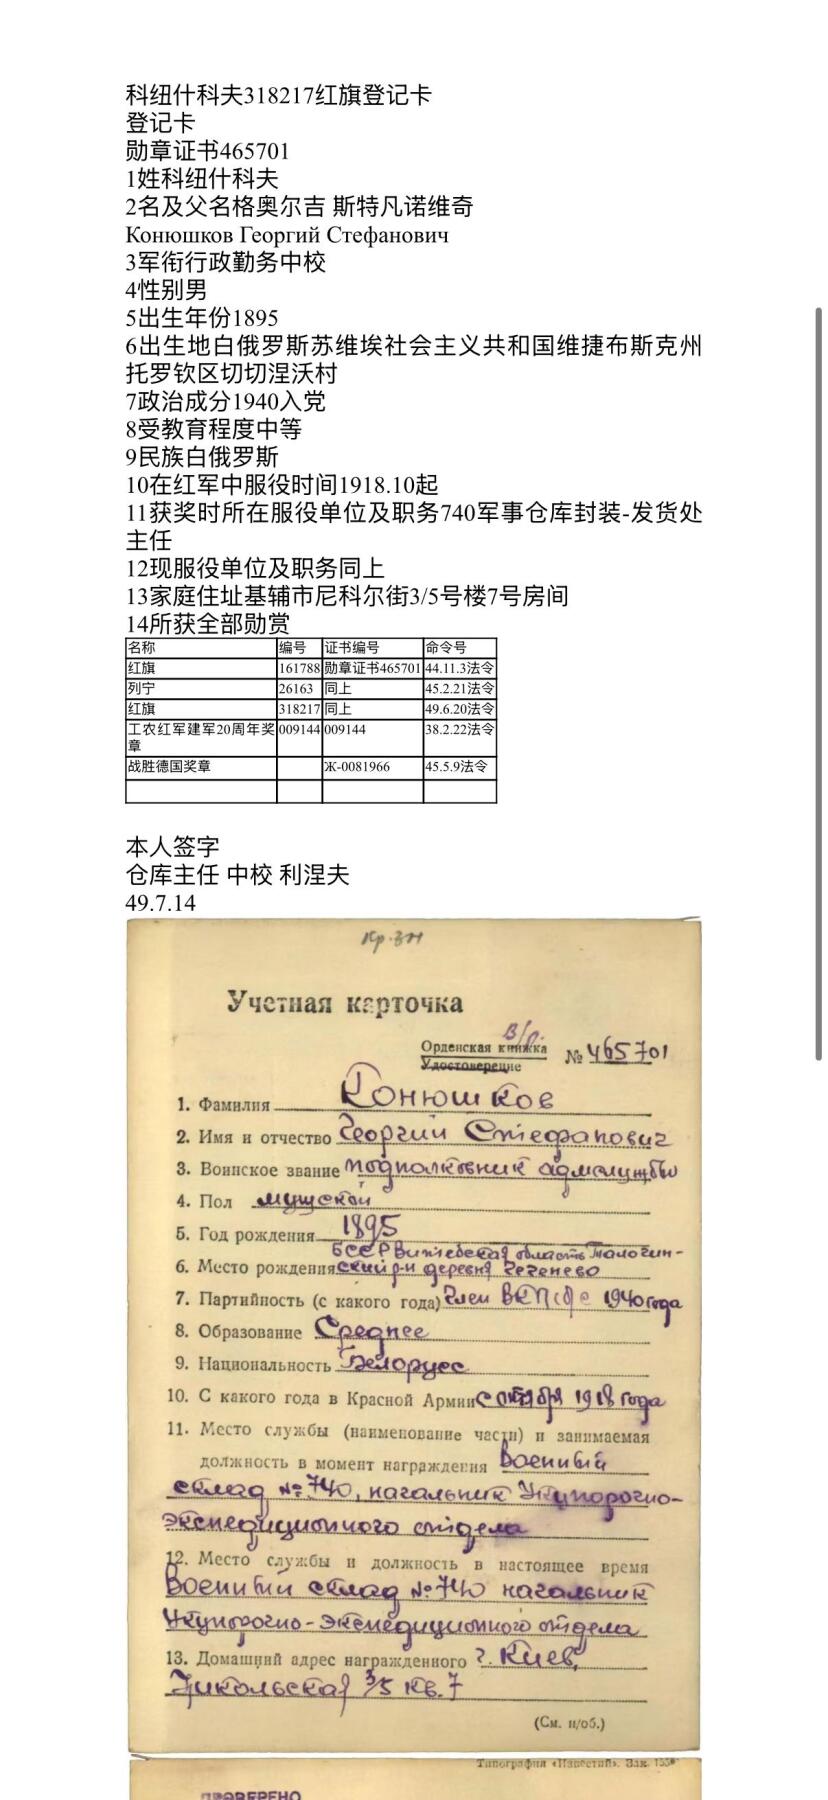 科纽什科夫318217红旗登记卡
登记卡
勋章证书465701
1姓科纽什科夫
2名及父名格奥尔吉 斯特凡诺维奇
Конюшков Георгий Стефанович
3军衔行政勤务中校
4性别男
5出生年份1895
6出生地白俄罗斯苏维埃社会主义共和国维捷布斯克州
托罗钦区切切涅沃村
7政治成分1940入党
8受教育程度中等
9民族白俄罗斯
10在红军中服役时间1918.10起
11获奖时所在服役单位及职务740军事仓库封装-发货处
主任
12现服役单位及职务同上
13家庭住址基辅市尼科尔街3/5号楼7号房间
14所获全部勋赏
名称 编号 证书编号 命令号
红旗 161788 勋章证书465701 44.11.3法令
列宁 26163 同上 45.2.21法令
红旗 318217 同上 49.6.20法令
工农红军建军20周年奖 009144 009144 38.2.22法令
章
战胜德国奖章 Ж-0081966 45.5.9法令
本人签字
仓库主任 中校 利涅夫
49.7.14
Кр. зн
Учетная карточка
в/р.
Орденская книжка № 465701
Удостоверение
1. Фамилия Конюшков
2. Имя и отчество Георгий Стефанович
3. Воинское звание подполковник адмслужбы
4. Пол мужской
5. Год рождения 1895
БССР Витебская область Талочин-
6. Место рождения ский р-н деревня Чеченево
7. Партийность (с какого года) член ВКП(б) с 1940 года
8. Образование Среднее
9. Национальность Белорусс
10. С какого года в Красной Армии с октября 1918 года
11. Место службы (наименование части) и занимаемая
должность в момент награждения Военный
склад № 740, начальник Укупорочно-
экспедиционного отдела
12. Место службы и должность в настоящее время
Военный склад № 740 начальник
Укупорочно-экспедиционного отдела
13. Домашний адрес награжденного г. Киев,
Никольская 3/5 кв. 7
(См. н/об.)
Типография «Известий». Зак.
ПРОВЕРЕНО